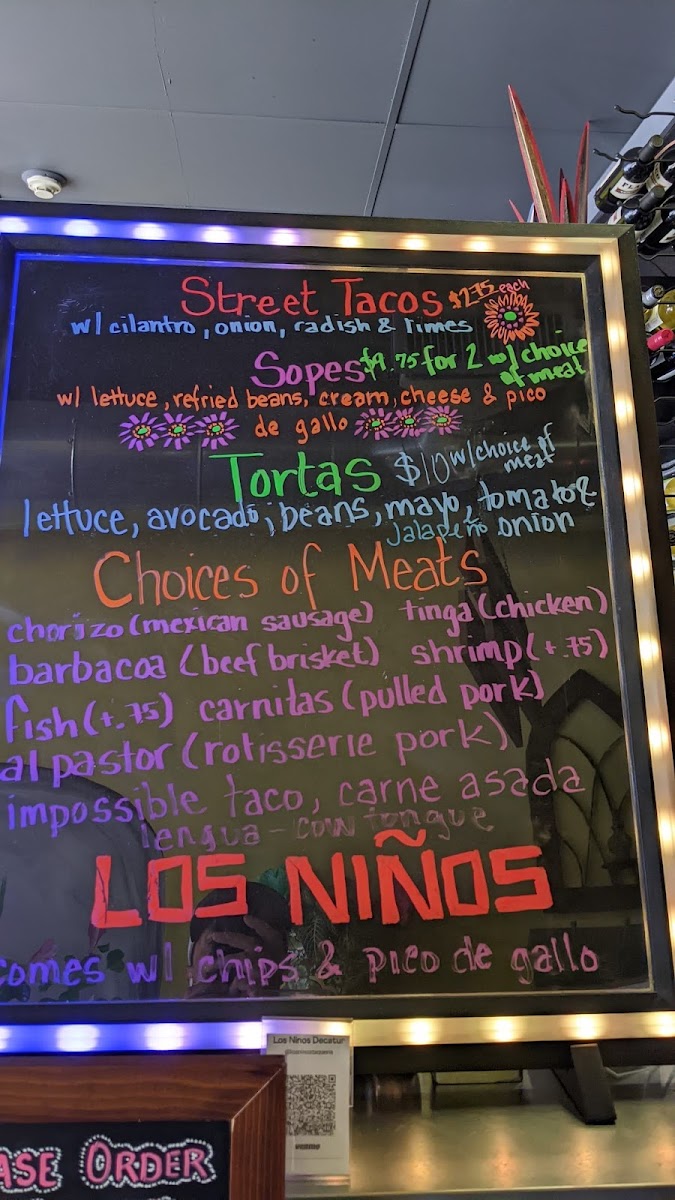 Street Tacos $2.75 each
w/ cilantro, onion, radish & limes
Sopes $9.75 for 2 w/ choice
of meat
w/ lettuce, refried beans, cream, cheese & pico
de gallo
Tortas $10 w/ choice of
meat
lettuce, avocado, beans, mayo, tomatoe
Jalapeño onion
Choices of Meats
chorizo (mexican sausage) tinga (chicken)
barbacoa (beef brisket) shrimp (+.75)
fish (+.75) carnitas (pulled pork)
al pastor (rotisserie pork)
impossible taco, carne asada
lengua - cow tongue
LOS NIÑOS
comes w/ chips & pico de gallo
Los Ninos Decatur
venmo
ASE ORDER